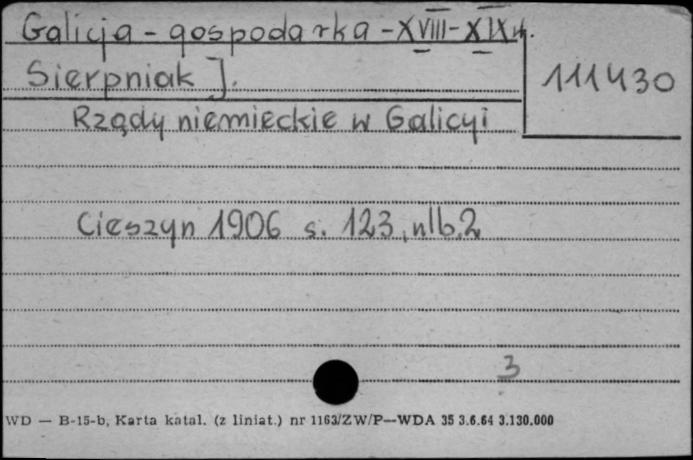 Galicja - gospodarka - XVIII - XIX w.
Sierpniak J.
111430
Rządy niemieckie w Galicyi
Cieszyn 1906 s. 123, nlb. 2
3
WD — B-15-b, Karta katal. (z liniat.) nr 1163/ZW/P—WDA 35 3.6.64 3.130.000